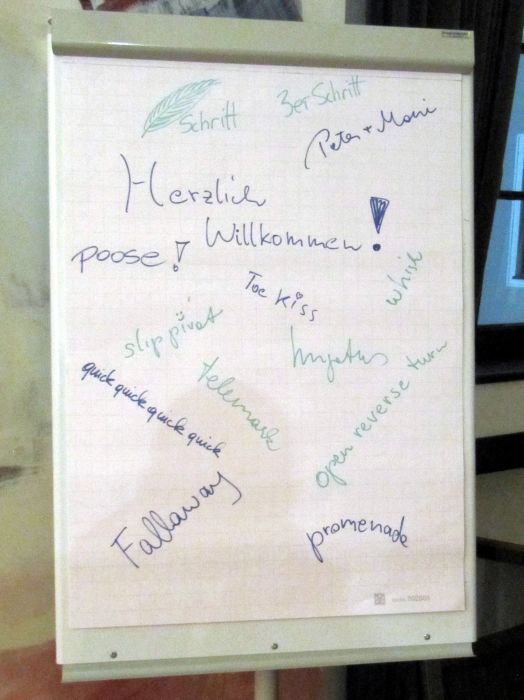 Schritt
3er Schritt
Peter + Moni
Herzlich
Willkommen!
poose!
Toe Kiss
whisk
slip pivot
Impetus
quick quick quick quick
telemark
open reverse turn
Fallaway
promenade